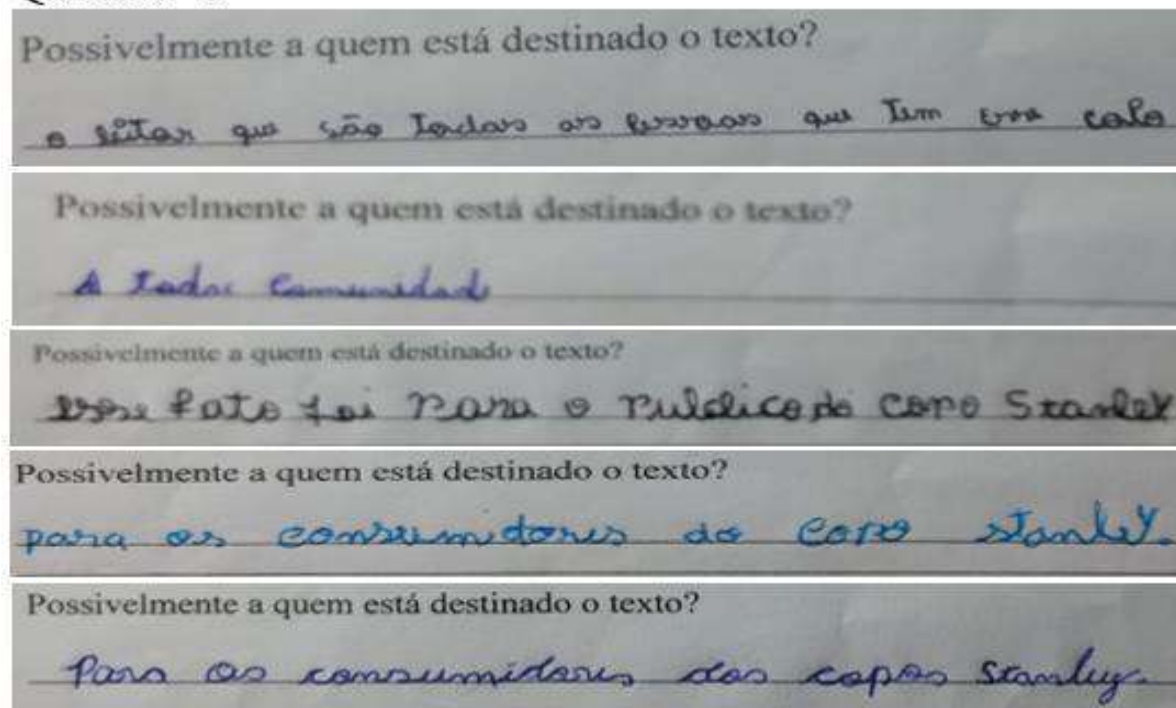 Possivelmente a quem está destinado o texto?
o leitor que são todas as pessoas que tem um copo
Possivelmente a quem está destinado o texto?
A toda comunidade
Possivelmente a quem está destinado o texto?
Esse fato foi para o publico do copo Stanley
Possivelmente a quem está destinado o texto?
para os consumidores do copo stanley.
Possivelmente a quem está destinado o texto?
Para os consumidores dos copos Stanley.